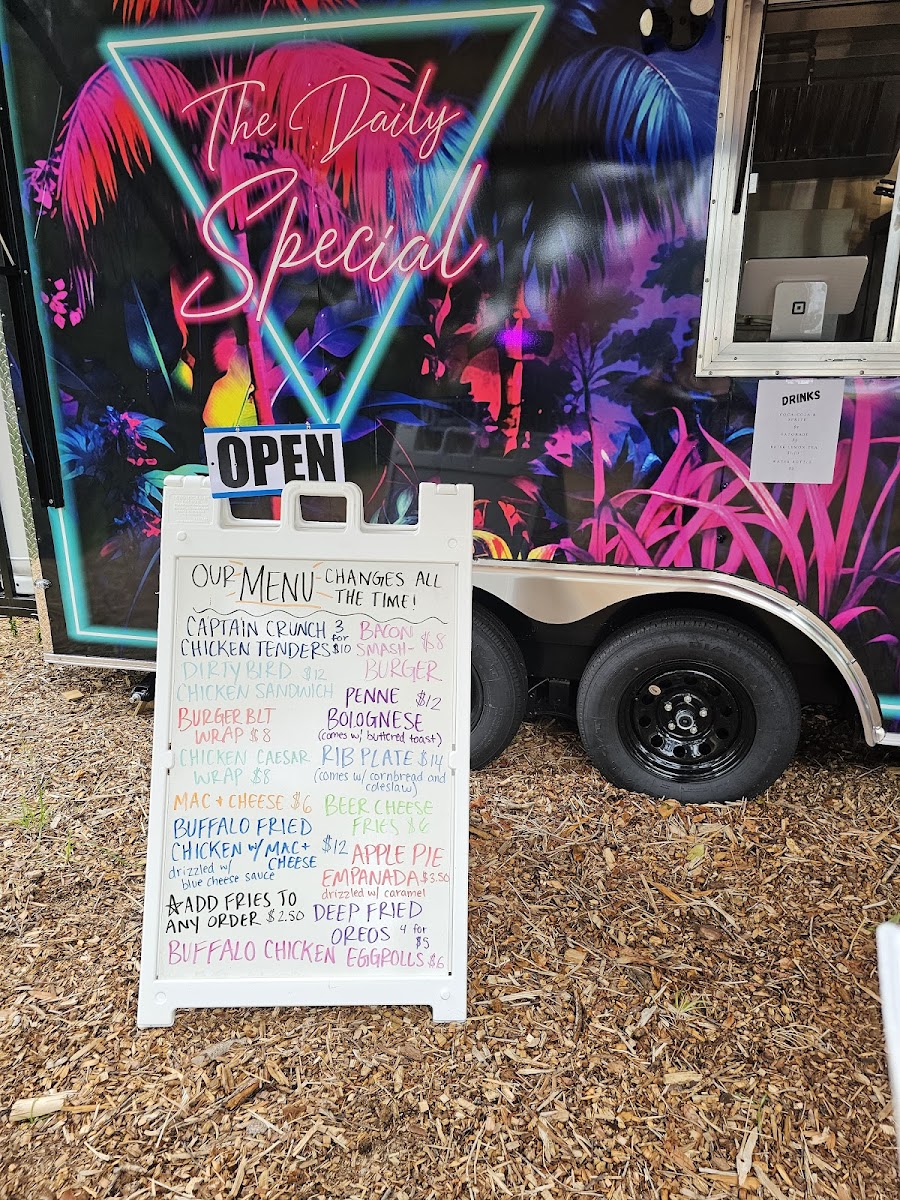 The Daily
Special
OPEN
DRINKS
OUR MENU CHANGES ALL
THE TIME!
CAPTAIN CRUNCH 3 for
CHICKEN TENDERS $10
DIRTY BIRD $12
CHICKEN SANDWICH
BURGER BLT
WRAP $8
CHICKEN CAESAR
WRAP $8
MAC + CHEESE $6
BUFFALO FRIED
CHICKEN W/ MAC +
CHEESE $12
drizzled w/
blue cheese sauce
☆ADD FRIES TO
ANY ORDER $2.50
BACON
SMASH- $8
BURGER
PENNE $12
BOLOGNESE
(comes w/ buttered toast)
RIB PLATE $14
(comes w/ cornbread and
coleslaw)
BEER CHEESE
FRIES $6
APPLE PIE
EMPANADA $3.50
drizzled w/ caramel
DEEP FRIED
OREOS 4 for
$5
BUFFALO CHICKEN EGGROLLS $6